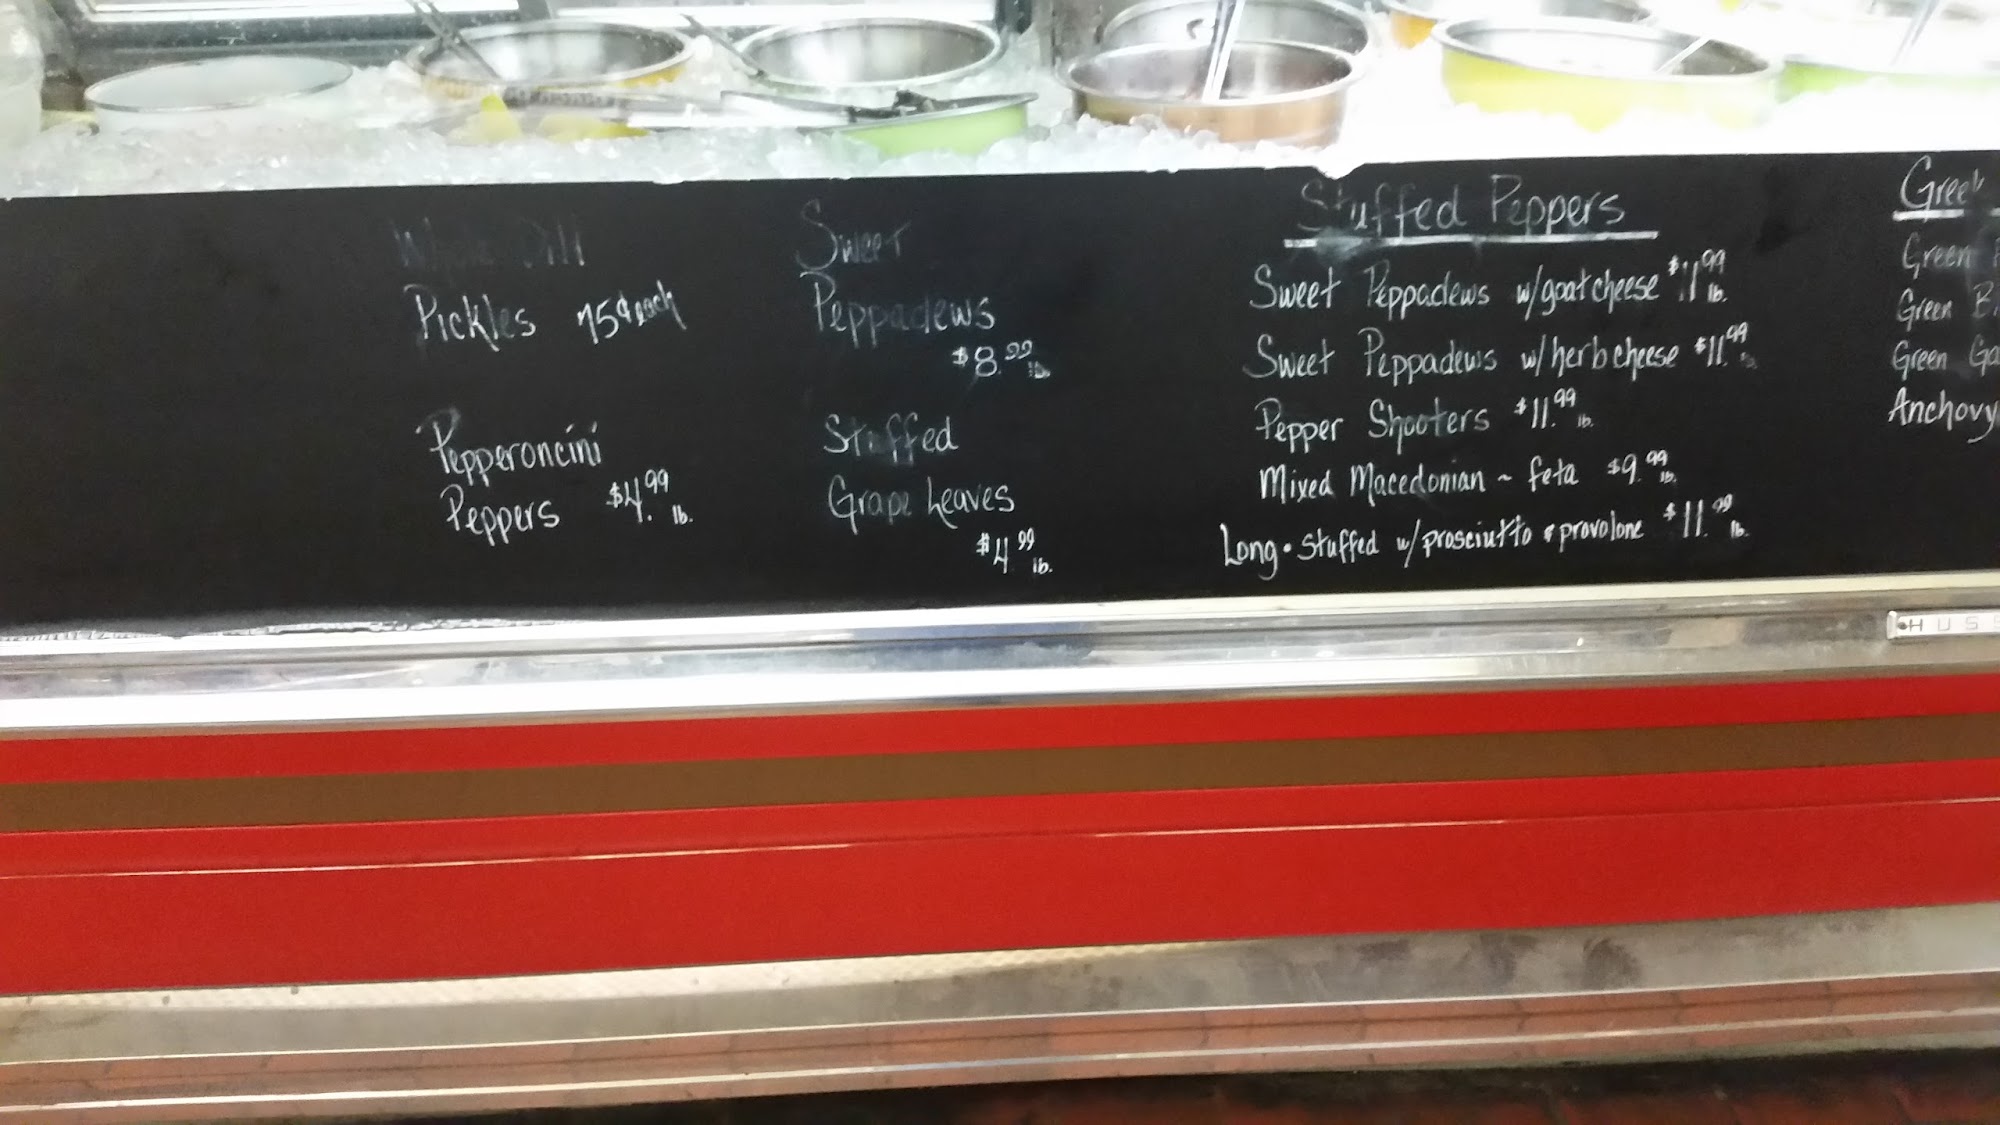 Whole Dill
Pickles 75¢ each
Pepperoncini
Peppers $4.99 lb.
Sweet
Peppadews
$8.99 lb
Stuffed
Grape Leaves
$4.99 lb.
Stuffed Peppers
Sweet Peppadews w/goat cheese $11.99 lb.
Sweet Peppadews w/herb cheese $11.99 lb
Pepper Shooters $11.99 lb.
Mixed Macedonian ~ feta $9.99 lb.
Long • Stuffed w/prosciutto & provolone $11.99 lb.
Greek
Green
Green
Green
Anchovy
HUSS